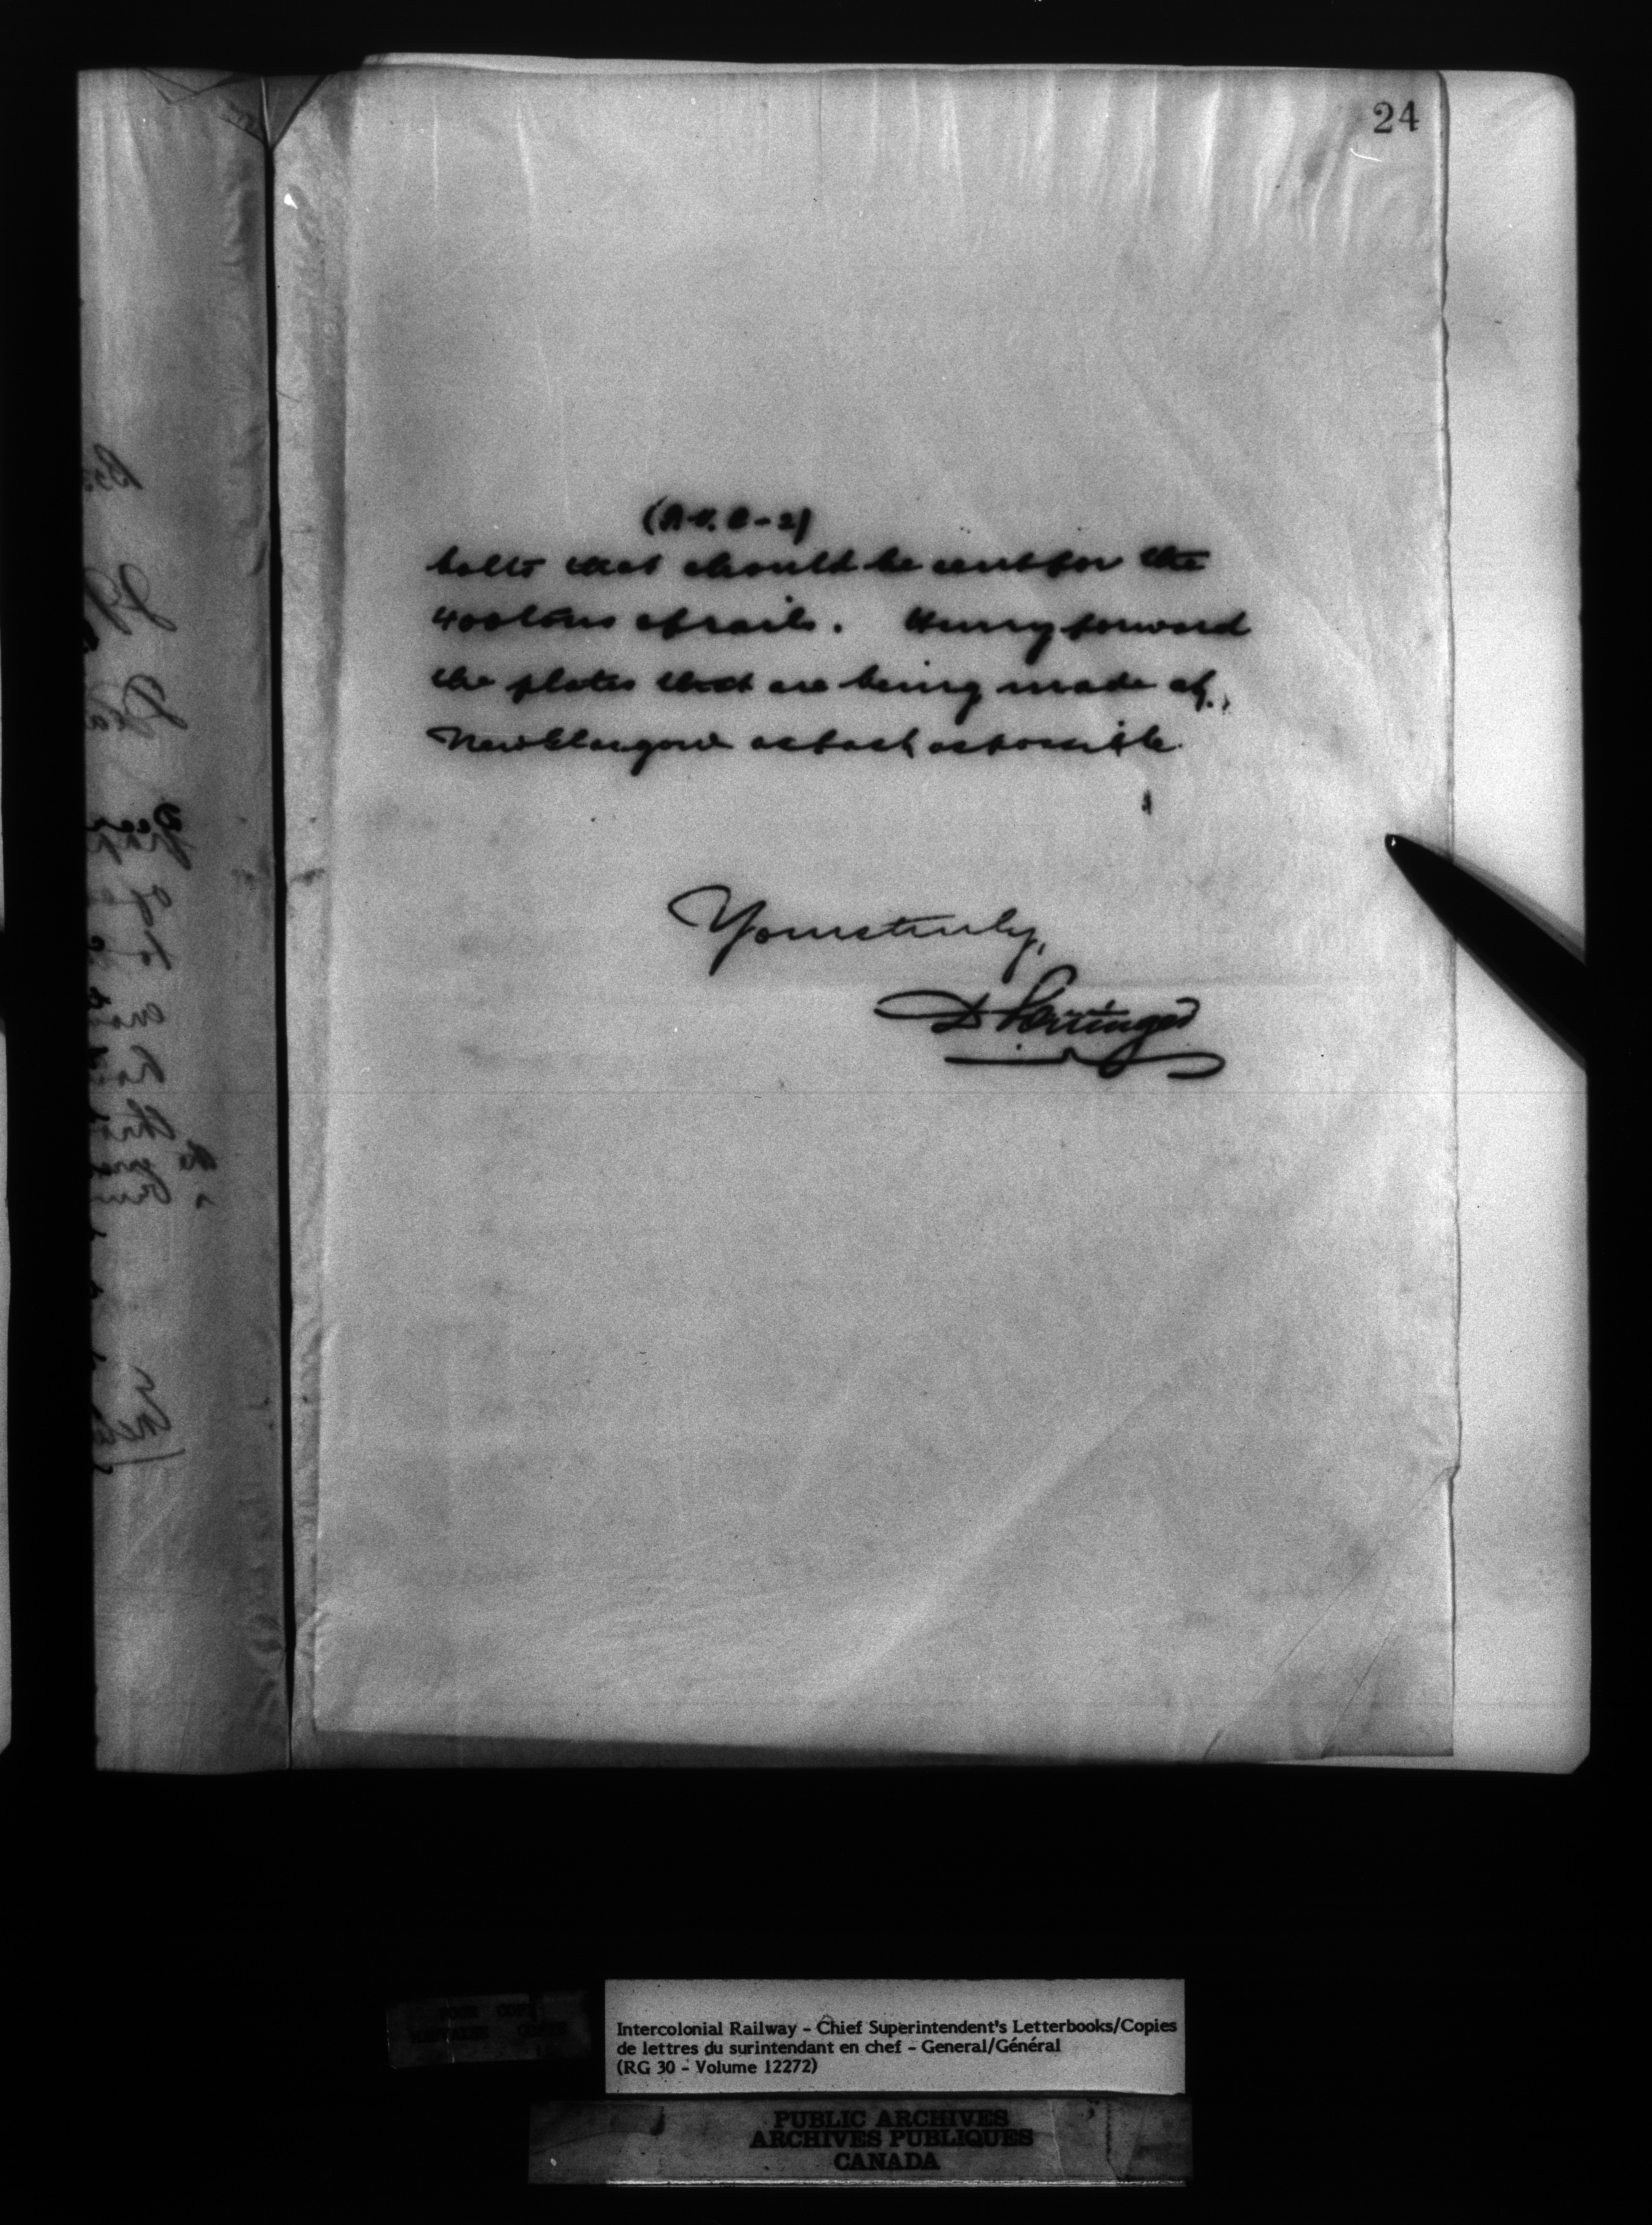 24
(A.V.C-2)
bolts that should be sent for the
400 tons of rails. Hurry forward
the plates that are being made at
New Glasgow as fast as possible.
Yours truly,
D Pottinger
Intercolonial Railway - Chief Superintendent's Letterbooks/Copies
de lettres du surintendant en chef - General/Général
(RG 30 - Volume 12272)
PUBLIC ARCHIVES
ARCHIVES PUBLIQUES
CANADA